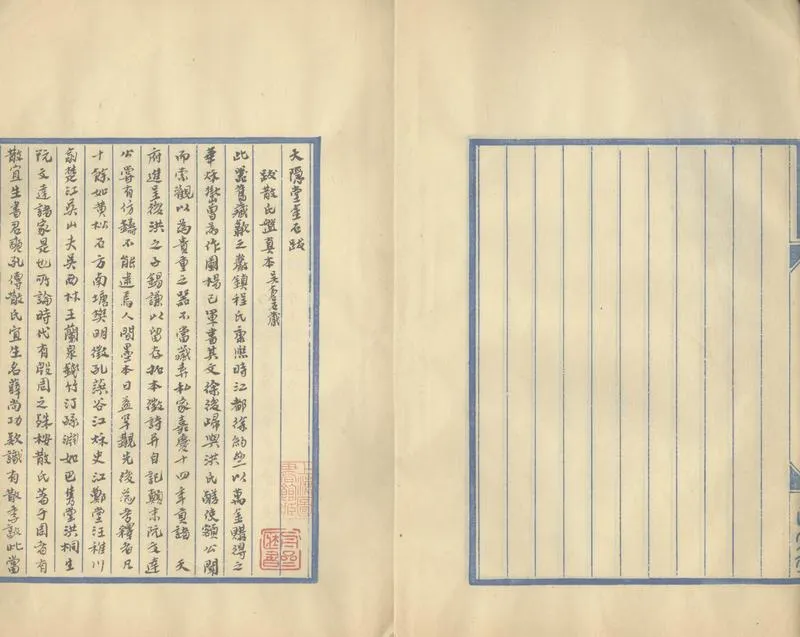 大隱堂金石跋
跋散氏盤真本 吳盦藏
此器舊藏歙之巖鎮程氏康熙時江都徐約以萬金購得之
華秋嶽曾為作圖楊已軍書其文徐後歸與洪氏鹺使額公聞
而索觀以為貴重之器不當藏弆私家嘉慶十四年貢諸天
府進呈後洪之子錫謙以留存拓本徵詩并自記顛末阮文達
公嘗有仿鑄不能逮焉人間墨本日益罕覯先後為考釋者凡
十餘如黃松石方南塘樊明徵孔葓谷江秋史江鄭堂汪稚川
俞楚江吳山夫吳西林王蘭泉錢竹汀孫淵如巴雋堂洪桐生
阮文達諸家是也所論時代有殷周之殊按散氏著于周者有
散宜生書君奭孔傳散氏宜生名薛尚功款識有散季敦此當